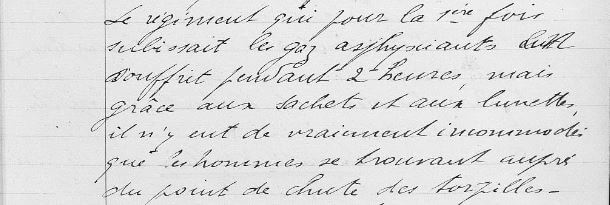 Le régiment qui pour la 1ère fois
subissait les gaz asphyxiants
souffrit pendant 2 heures, mais
grâce aux sachets et aux lunettes,
il n'y eut de vraiment incommodés
que les hommes se trouvant auprès
du point de chute des torpilles -